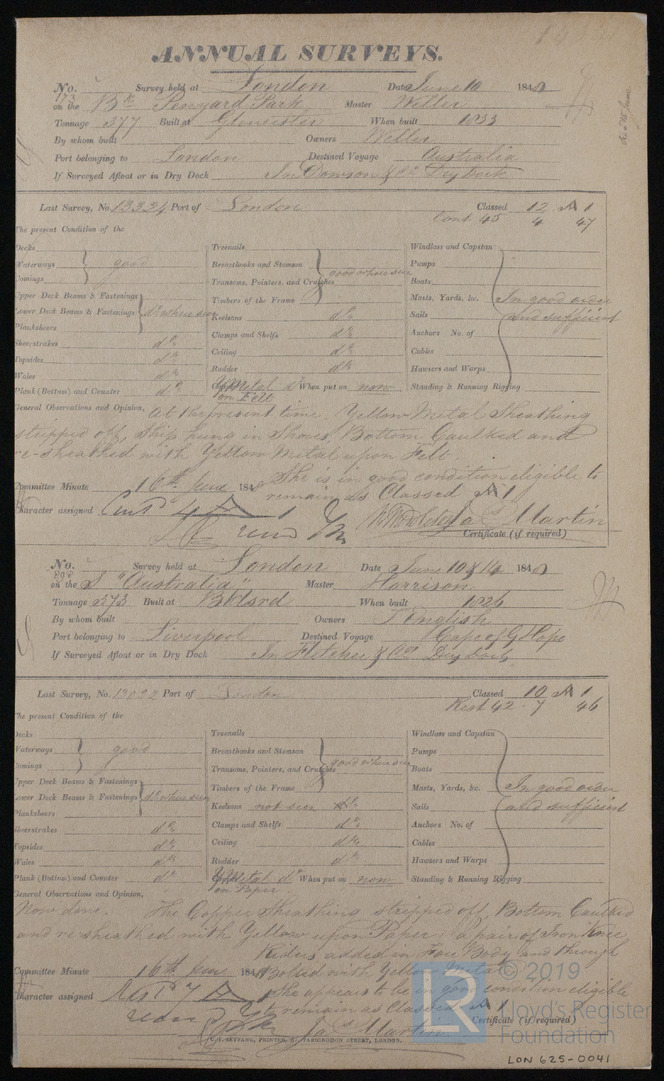 ANNUAL SURVEYS.
No. 173 Survey held at London Date June 10 1848
on the Bk Penyard Park Master Weller
Tonnage 377 Built at Gloucester When built 1833
By whom built Owners Weller
Port belonging to London Destined Voyage Australia
If Surveyed Afloat or in Dry Dock In Dowson & Co Dry Dock
Last Survey, No. 13324 Port of London Classed 12 A 1
Cont 45 4 47
The present Condition of the
Decks
Waterways good
Comings
Upper Deck Beams & Fastenings
Lower Deck Beams & Fastenings do where seen
Planksheers
Sheerstrakes do
Topsides do
Wales do
Plank (Bottom) and Counter do
Treenails
Breasthooks and Stemson good where seen
Transoms, Pointers, and Crutches
Timbers of the Frame
Keelsons do
Clamps and Shelfs do
Ceiling do
Rudder do
Y Metal do When put on now
on Felt
Windlass and Capstan
Pumps
Boats
Masts, Yards, &c. In good order
Sails and sufficient
Anchors No. of
Cables
Hawsers and Warps
Standing & Running Rigging
General Observations and Opinion, At the present time Yellow Metal Sheathing
stripped off, Ship hung in Shores, Bottom Caulked and
re-sheathed with Yellow Metal upon Felt.
She is in good condition eligible to
Committee Minute 16th June 1848
remain as Classed A 1
Character assigned Contd 4 A 1
Jas Martin
Certificate (if required)
No. 806 Survey held at London Date June 10 & 14 1848
on the S "Australia" Master Harrison
Tonnage 373 Built at When built 1826
By whom built Owners T English
Port belonging to Liverpool Destined Voyage Cape of G Hope
If Surveyed Afloat or in Dry Dock In Fletcher & Cos Dry Dock
Last Survey, No. 13092 Port of London Classed 10 A 1
Rest 42 - 7 46
The present Condition of the
Decks
Waterways good
Comings
Upper Deck Beams & Fastenings
Lower Deck Beams & Fastenings do where seen
Planksheers
Sheerstrakes do
Topsides do
Wales do
Plank (Bottom) and Counter do
Treenails
Breasthooks and Stemson good where seen
Transoms, Pointers, and Crutches
Timbers of the Frame
Keelsons not seen do
Clamps and Shelfs do
Ceiling do
Rudder do
Y Metal do When put on now
on Paper
Windlass and Capstan
Pumps
Boats
Masts, Yards, &c. In good order
Sails and sufficient
Anchors No. of
Cables
Hawsers and Warps
Standing & Running Rigging
General Observations and Opinion,
Now done. The Copper Sheathing stripped off, Bottom Caulked
and re-sheathed with Yellow upon Paper, a pair of Iron Knee
Riders added in Fore Body and through
Bolted with Yellow Metal
Committee Minute 16th June 1848
She appears to be in good condition eligible
Character assigned Restd 7 A 1
to remain as Classed A 1
Jas Martin
Certificate (if required)
SEYFANG, PRINTER, FARRINGDON STREET, LONDON.
© 2019
LR Lloyd's Register
Foundation
LON 625-0041